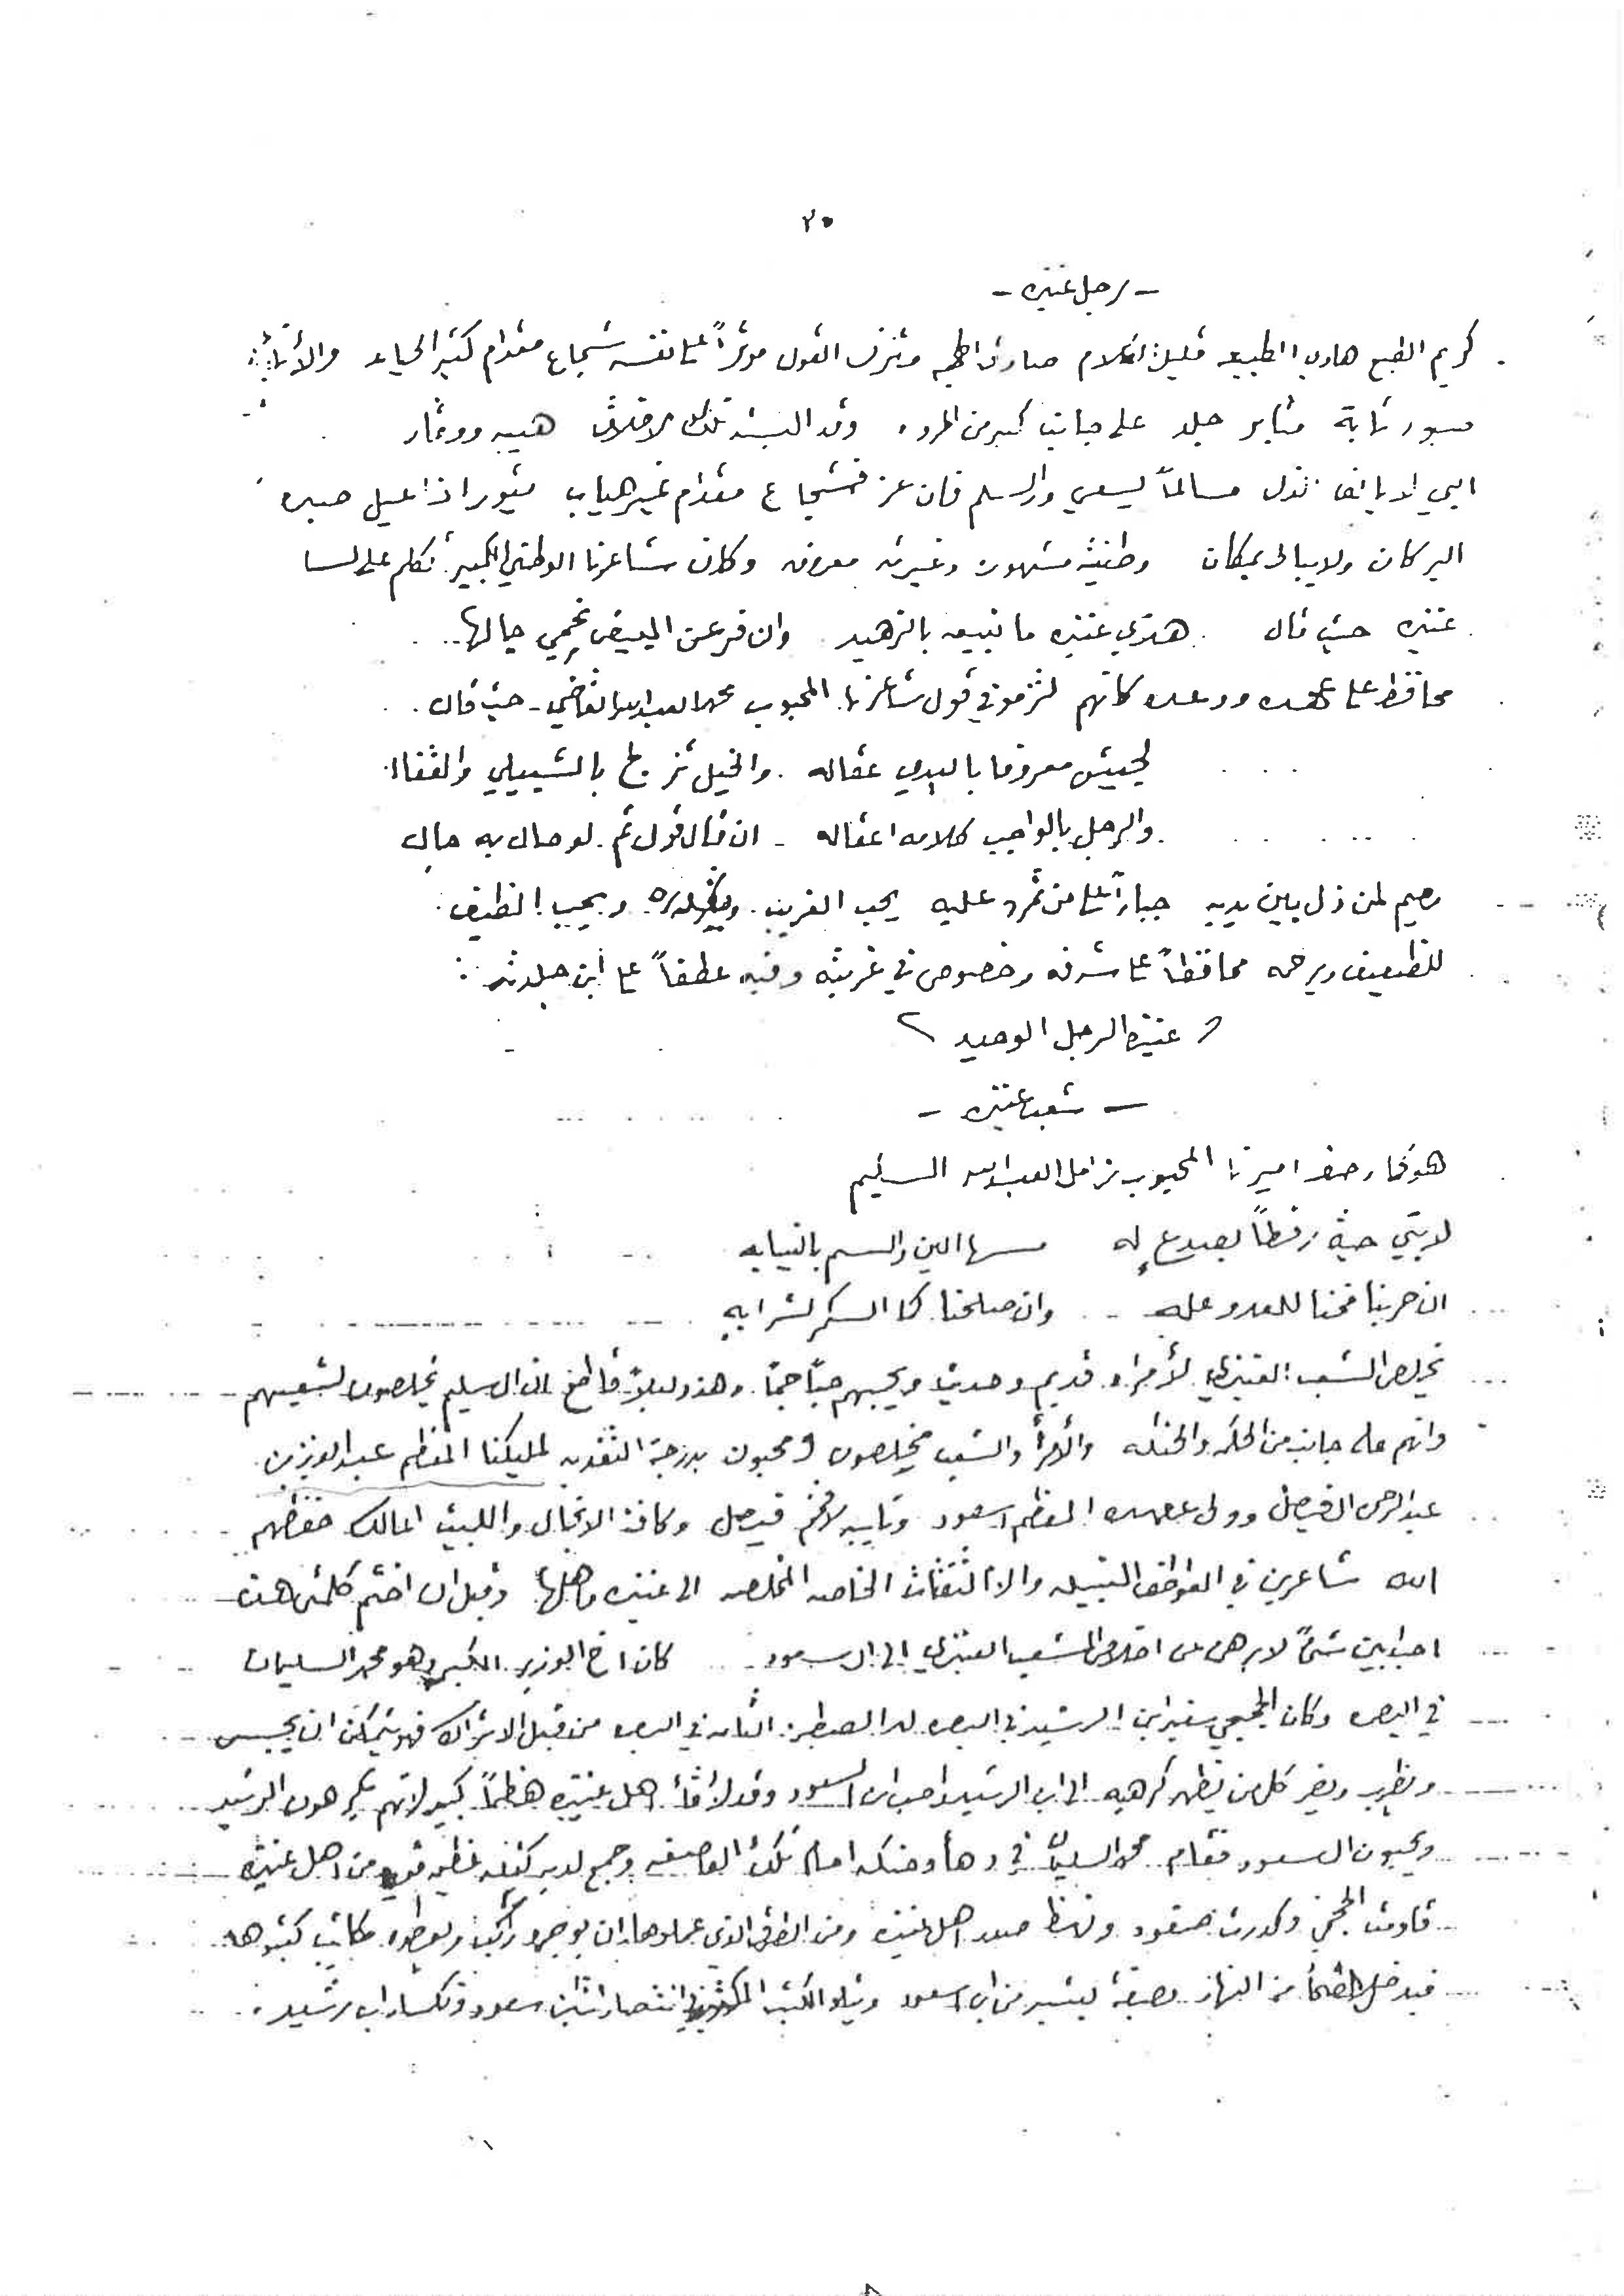 ٢٥
- رجل عنيزه -
كريم الطبع هادي الطبيعه قليل الكلام صادق اللهجه ونزف القول موثراً على نفسه شجاع مقدام كثير الحياء والأناة
صبور ثابة مثابر جلد على جانب كبير من المروءه وقد البسته تلك الاخلاق هيبه ووقار
ابي لا يانف نزول مسالماً يسعي ورا السلم فان عز فشجاع مقدام غير هياب يثور اذا عيل صبره
البركان ولايبالى بمكان وطنيته مشهوره وغيرته معروفه وكان شاعرنا الوطني الكبير تكلم على لسا
عنيزه حيث قال هذي عنيزه ما نبيعه بالزهيد وان فرعن البيض نحمي جالها..
محافظ على عهده ووعده كانهم لزموني قول شاعرنا المحبوب محمد العبدالله القاضي - حيث قال .
الجيش معروفا باليدي عقاله . والخيل تزرج بالشبيلي والقفال
والرجل بالواجب كلامه اعقاله - ان قال قول تم لو حال به حال
رحيم لمن ذل بين يديه جباراً على من تمرد عليه يحب الغريب ويكرمه ويحب الضيف
للضعيف ويرحمه محافظاً على شرفه وخصوص في غربته وفيه عطفاً على ابن جلدته :
( عنيزه الرجل الوحيد )
- شعب عنيزه -
هو كما وصفه اميرنا المحبوب زامل العبدالله السليم
لابتي حية رقطاً بصدع له مسها لين والسم بانيابه
ان حربنا فحنا للعدو عله .. وان صلحنا كما السكر لشرابه
يخلص الشعب العنيزي لأمراه قديم وحديث ويحبهم حباً جماً وهذه دليلاً قاطع ان ال سليم يخلصون لشعبهم
وانهم على جانب من الحكمه والحنكه والأمرأ والشعب مخلصون ومحبون بدرجة التقديه لمليكنا المعظم عبدالعزيز بن
عبدالرحمن الفيصل وولى عهده المعظم سعود ونايبه لافخم فيصل وكافة الانجال والبيت المالك حفظهم
الله شاعرين في العواطف النبيله والالتفات الخاصه المخلصه الى عنيزه واهلها وقبل ان اختم كلمتي هذه
احب ابين شيئً لابرهن عن اخلاص الشعب العنيزي الى ال سعود كان اخ الوزير الكبير وهو محمد السليمان
في البصره وكان الجحي سفير ابن الرشيد في البصره لدا السلطه التامه في البصره من قبل الاتراك فهو يتمكن ان يحبس
ويضرب ويضر كل من يظهر كرهيه الى ابن الرشيد واحب ابن السعود وقد لاقا اهل عنيزه هظماً كبير لانهم يكرهون الرشيد
ويحبون السعود فقام محمد السليمان في دهأ وحنكه امام تلك العاصفه وجمع لديه كتله عظيمه قويه من اهل عنيزه
قاومت الجحي وكدرت صفوه وفي صدر اهل عنيزه ومن الطرق الذي عملوها ان يوجد راكب ويعطوه مكاتيب كتبوها
فيدخل الضحأ من النهار بصفة بشير من ابن سعود ويتلو الكتب المكتوبه في انتصارات ابن سعود وانكسار ابن رشيد :